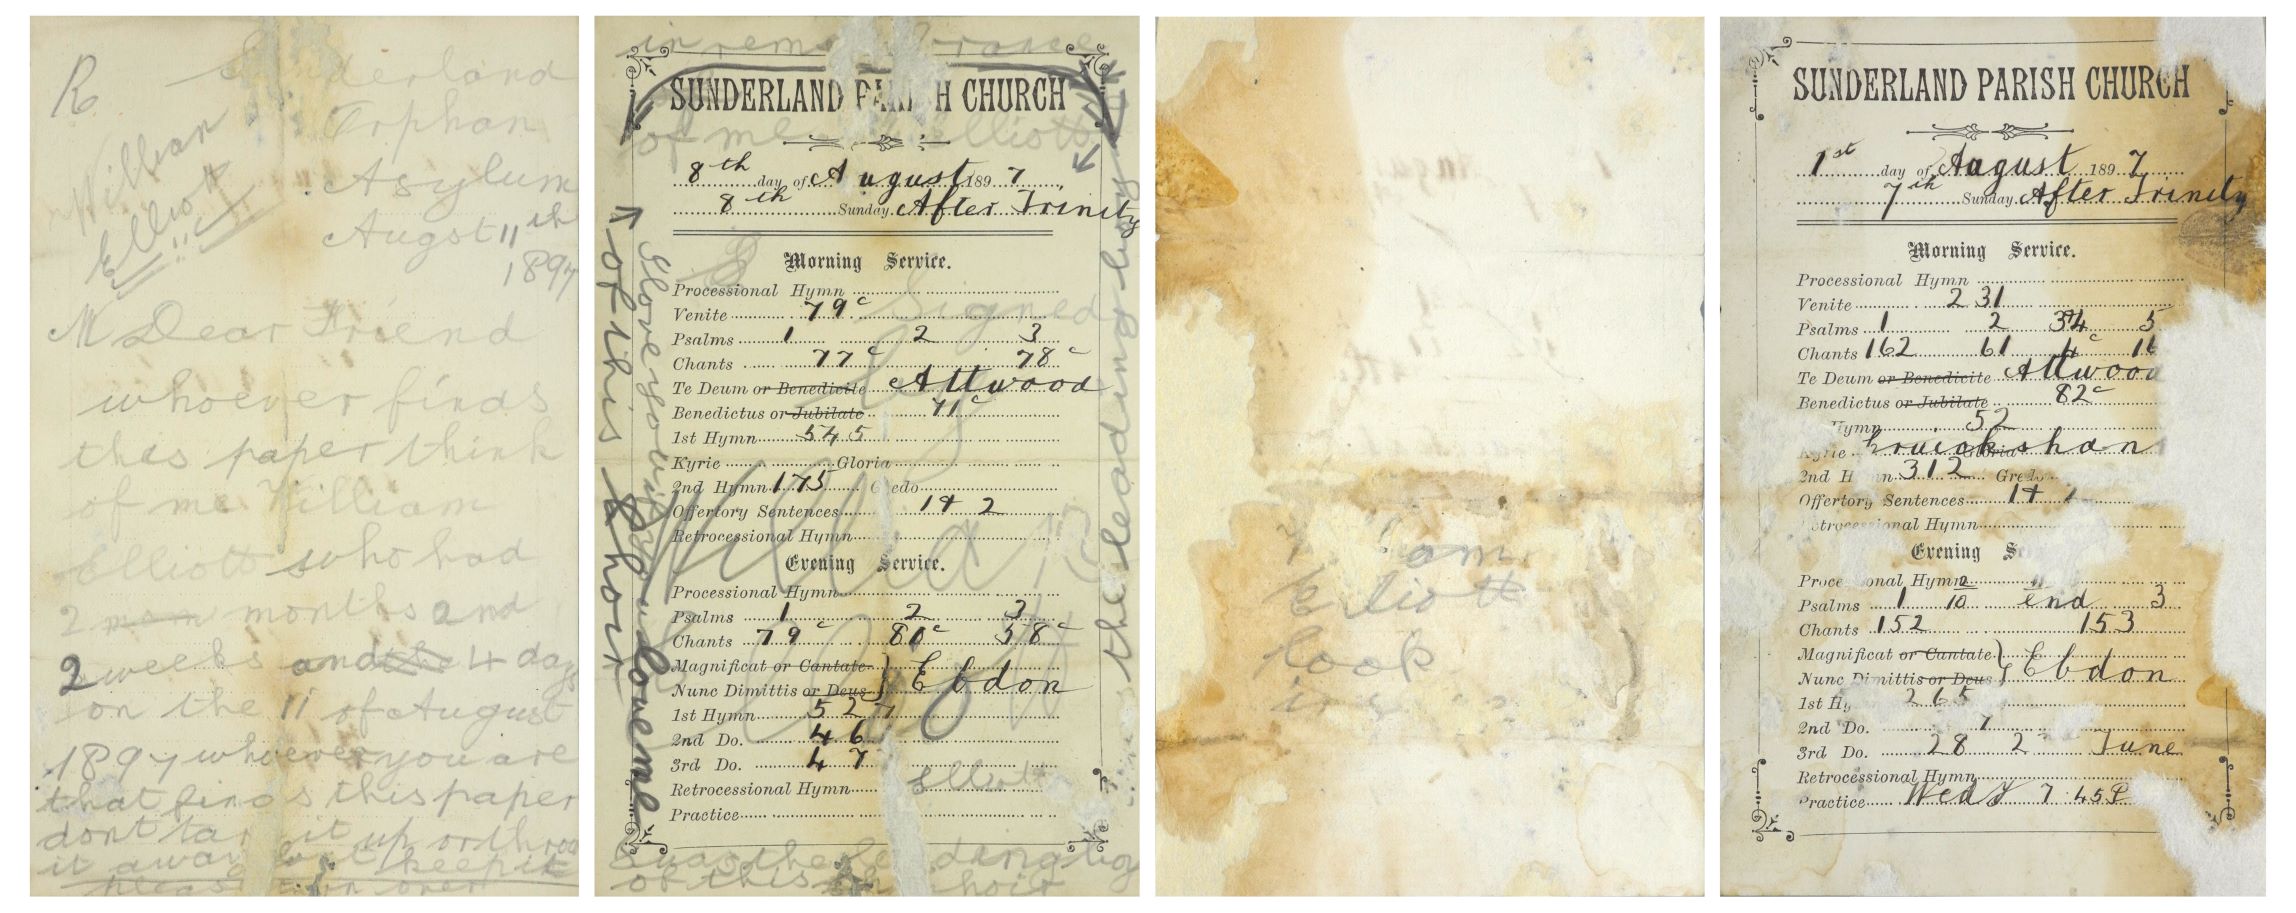 R
Sunderland
Orphan
Asylum
Augst 11th
1897
William
Elliott
Dear Friend
whoever finds
this paper think
of me William
Elliott who had
2 months and
2 weeks and 4 days
on the 11 of August
1897 whoever you are
that finds this paper
dont tar it up or throw
it away but keep it
over
in remembrance
of me Elliott
SUNDERLAND PARISH CHURCH
8th day of August 1897
8th Sunday After Trinity
Morning Service.
Processional Hymn
Venite 79c
Psalms 1 2 3
Chants 77c 78c
Te Deum or Benedicite Attwood
Benedictus or Jubilate 71c
1st Hymn 545
Kyrie Gloria
2nd Hymn 175 Credo
Offertory Sentences 1+ 2
Retrocessional Hymn
Evening Service.
Processional Hymn
Psalms 1 2 3
Chants 79c 80c 58c
Magnificat or Cantate
Nunc Dimittis or Deus } Ebdon
1st Hymn 527
2nd Do. 46
3rd Do. 47
Retrocessional Hymn
Practice
Signed
Elliott
I love you if you love me
the leading boy
of this choir
I was the leading boy
of this choir
Elliott
look
SUNDERLAND PARISH CHURCH
1st day of August 1897
7th Sunday After Trinity
Morning Service.
Processional Hymn
Venite 231
Psalms 1 2 5
Chants 162 61
Te Deum or Benedicite Attwood
Benedictus or Jubilate 82c
Hymn 52
Kyrie Cruickshan
Gloria
2nd Hymn 312 Credo
Offertory Sentences 1+
Retrocessional Hymn
Evening Se
Processional Hymn
Psalms 1 10 end 3
Chants 152 153
Magnificat or Cantate
Nunc Dimittis or Deus } Ebdon
1st Hy 265
2nd Do. 7
3rd Do. 28 2 Tune
Retrocessional Hymn
Practice Wedy 7.45 P